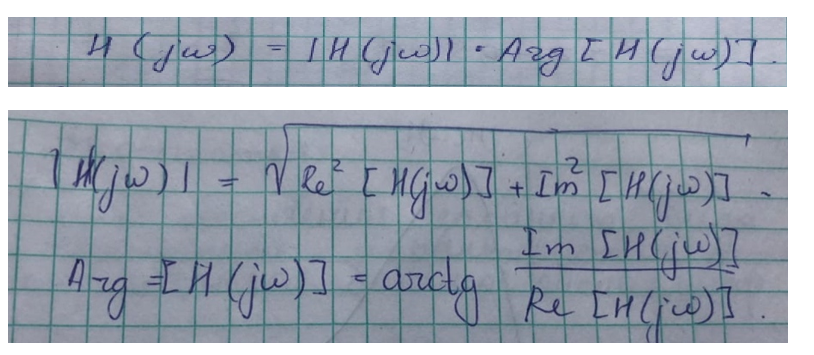 H (jω) = |H(jω)| · Arg [H(jω)].
|H(jω)| = √Re² [H(jω)] + Im² [H(jω)] -
Arg =[H(jω)] = arctg Im [H(jω)] / Re [H(jω)].